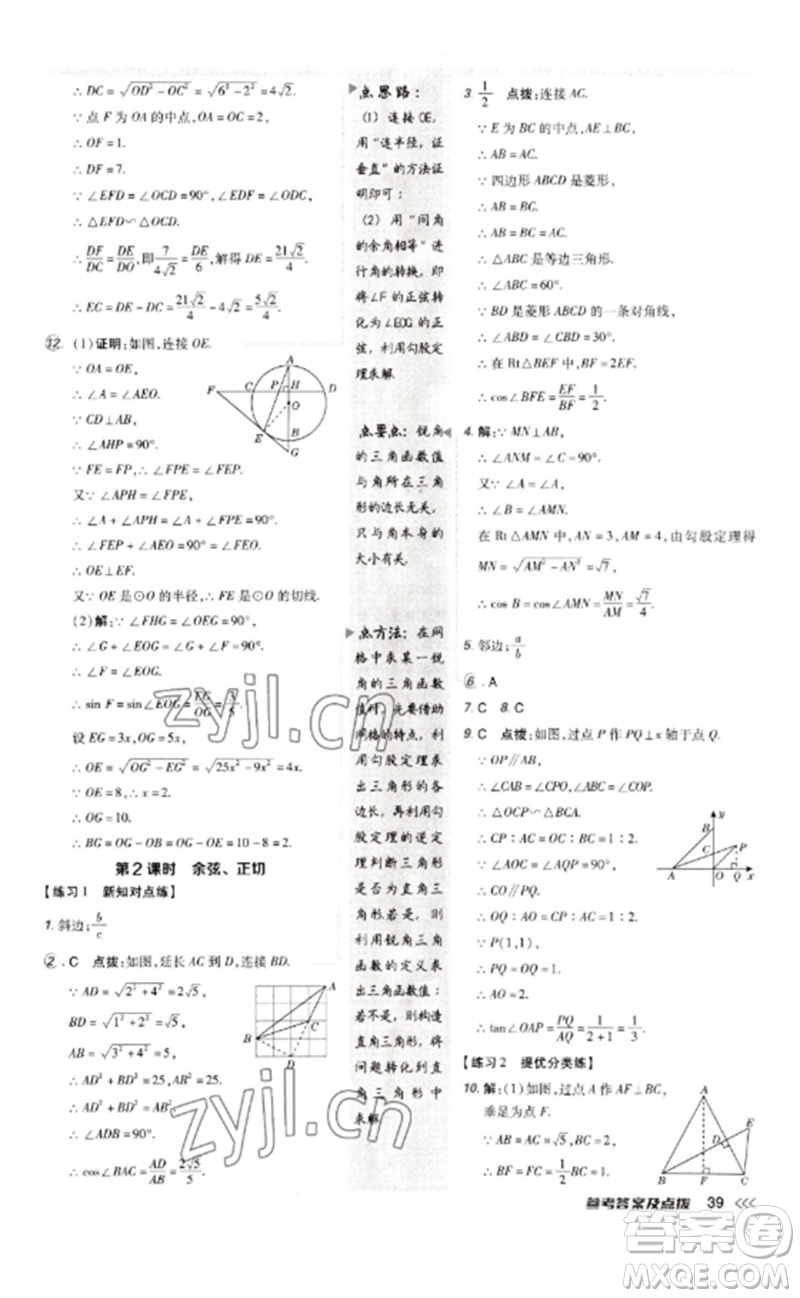 ∴ DC = √(OD² − OC²) = √(6² − 2²) = 4√2.
∵ 点 F 为 OA 的中点, OA = OC = 2,
∴ OF = 1.
∴ DF = 7.
∵ ∠EFD = ∠OCD = 90°, ∠EDF = ∠ODC,
∴ △EFD∽△OCD.
∴ DF/DC = DE/DO, 即 7/(4√2) = DE/6, 解得 DE = 21√2/4.
∴ EC = DE − DC = 21√2/4 − 4√2 = 5√2/4.
12. (1)证明:如图,连接 OE.
∵ OA = OE,
∴ ∠A = ∠AEO.
∵ CD⊥AB,
∴ ∠AHP = 90°.
∵ FE = FP, ∴ ∠FPE = ∠FEP.
又∵ ∠APH = ∠FPE,
∴ ∠A + ∠APH = ∠AEO + ∠FEP = 90°.
∴ OE⊥EF.
又∵ OE 是⊙O 的半径, ∴ FE 是⊙O 的切线.
(2)解:∵ ∠FHG = ∠OEG = 90°,
∴ ∠G + ∠EOG = ∠G + ∠F = 90°.
∴ ∠F = ∠EOG.
∴ sin F = sin∠EOG = EG/OG = 3/5.
设 EG = 3x, OG = 5x,
∴ OE = √(OG² − EG²) = √(25x² − 9x²) = 4x.
∵ OE = 8, ∴ x = 2.
∴ OG = 10.
∴ BG = OG − OB = 10 − 8 = 2.
第 2 课时 余弦、正切
【练习1 新知对点练】
1. 斜边; b/c
2. C 点拨:如图,延长 AC 到 D,连接 BD.
∵ AD = √(2² + 4²) = 2√5,
BD = √(1² + 2²) = √5,
AB = √(3² + 4²) = 5,
∴ AD² + BD² = AB².
∴ ∠ADB = 90°.
∴ cos∠BAC = AD/AB = 2√5/5.
F C P H D A O E B G
A C B D
点思路:
(1) 连接OE,
用“连半径,证
垂直”的方法证
明即可;
(2) 用“同角
的余角相等”进
行角的转换,即
将∠F 的正弦转
化为∠EOG 的正
弦,利用勾股定
理求解.
点要点:锐角
的三角函数值
与角所在三角
形的边长无关,
只与角本身的
大小有关.
点方法:在网
格中求某一锐
角的三角函数值
时,先要借助
网格的特点,利
用勾股定理求
出三角形的各
边长,再利用勾
股定理的逆定
理判断三角形
是否为直角三
角形若是,则
利用锐角三角
函数的定义求
出三角函数值;
若不是,则构造
直角三角形,将
问题转化到直
角三角形中
求解
3. 1/2 点拨:连接 AC.
∵ E 为 BC 的中点, AE⊥BC,
∴ AB = AC.
∵ 四边形 ABCD 是菱形,
∴ AB = BC.
∴ △ABC 是等边三角形.
∴ ∠ABC = 60°.
∵ BD 是菱形 ABCD 的一条对角线,
∴ ∠ABD = ∠CBD = 30°.
∴ 在 Rt△BEF 中, BF = 2EF.
∴ cos∠BFE = EF/BF = 1/2.
4. 解:∵ MN⊥AB,
∴ ∠ANM = ∠C = 90°.
又∵ ∠A = ∠A,
∴ ∠AMN = ∠B.
在 Rt△AMN 中, AN = 3, AM = 4, 由勾股定理得
MN = √(AM² − AN²) = √7,
∴ cos B = cos∠AMN = MN/AM = √7/4.
5. 邻边; a/b
6. A
7. C 8. C
9. C 点拨:如图,过点 P 作 PQ⊥x 轴于点 Q.
∵ OP∥AB,
∴ ∠CAB = ∠CPO, ∠ABC = ∠COP.
∴ △OCP∽△BCA.
∴ CP∶AC = OC∶BC = 1∶2.
∵ ∠AOC = ∠AQP = 90°,
∴ CO∥PQ.
∴ OQ∶AO = CP∶AC = 1∶2.
∵ P(1,1),
∴ PQ = OQ = 1.
∴ AO = 2.
∴ tan∠OAP = PQ/AQ = 1/(2+1) = 1/3.
y B C P A O Q x
【练习2 提优分类练】
10. 解:(1)如图,过点 A 作 AF⊥BC,
垂足为点 F.
∵ AB = AC = √5, BC = 2,
∴ BF = FC = 1/2 BC = 1.
A E D B F C
参考答案及点拨 39
zyjl.cn
zyjl.cn
答案卷
MXQE.COM